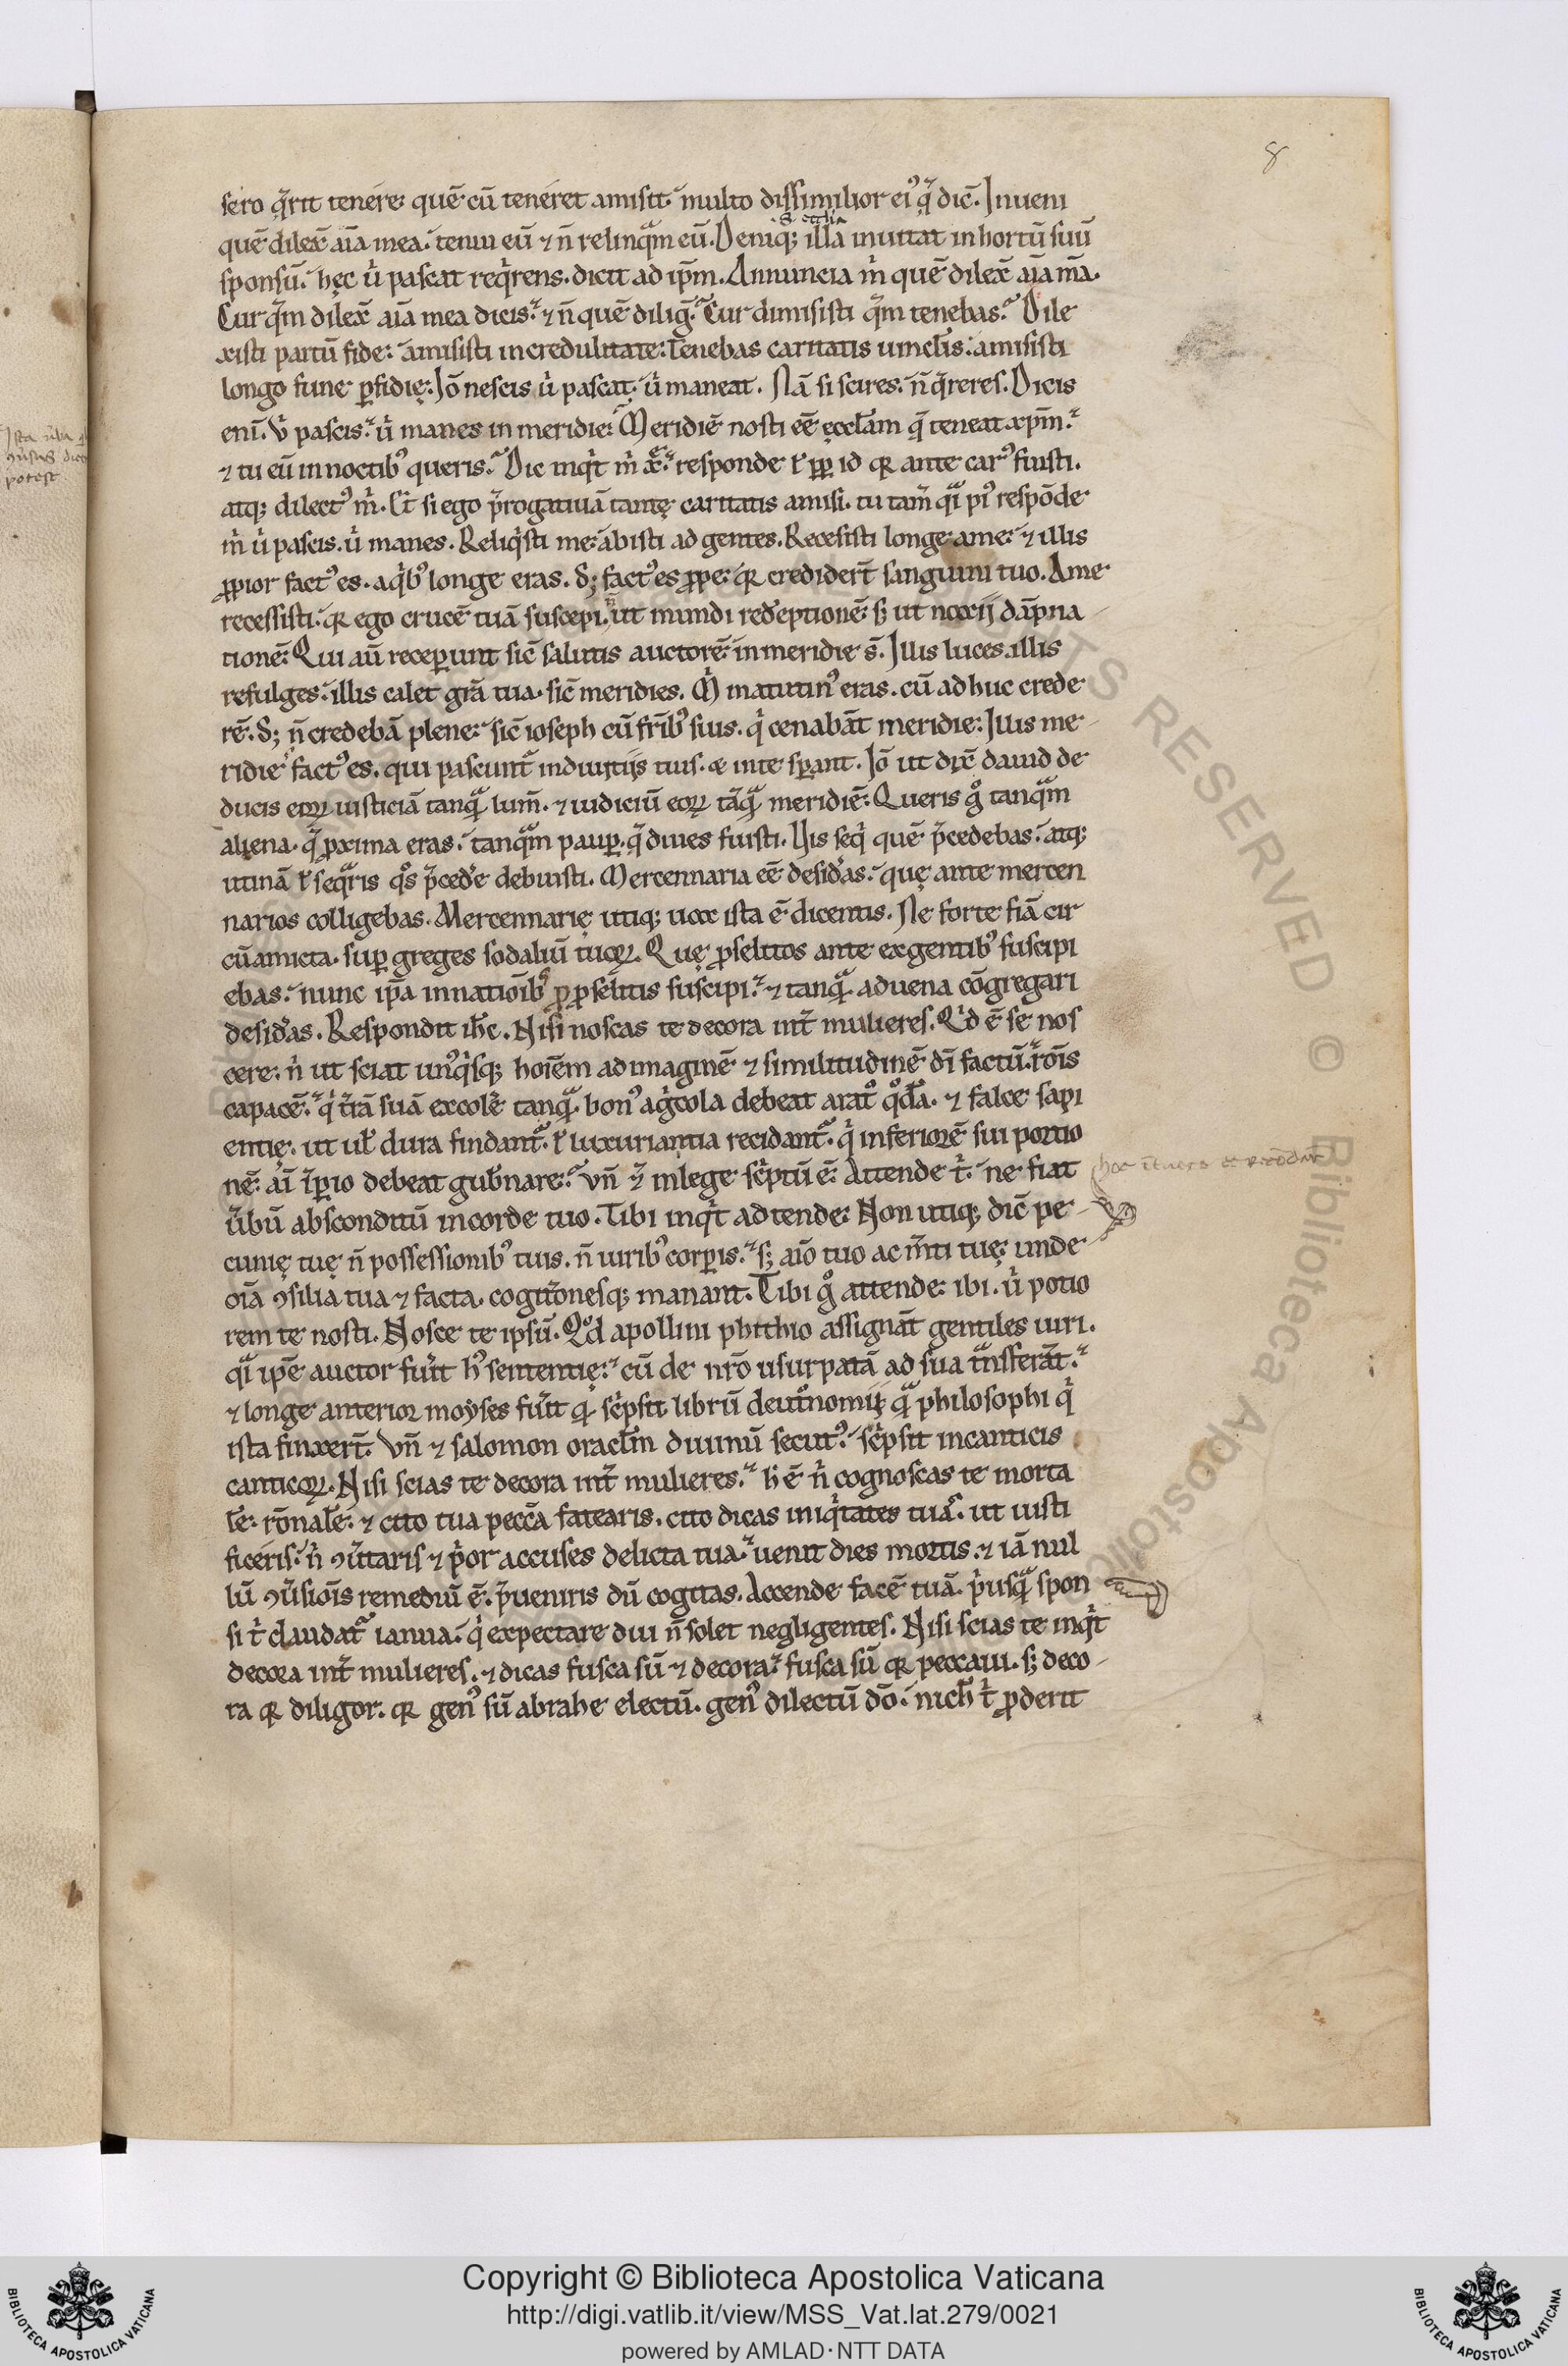 8
sero q̄rit tenere quē cū teneret amisit. multo dissimilior ei᷒ q̄ dic̄. Inueni
quē dilex̄ aīa mea. tenui eū ⁊ n̄ relinq̄m eū. Deniq; illā inuitat in hortū suū
sponsū. hęc u̇ pascat req̇rens. dicit ad ip̄m. Annuncia ṁ quē dilex̄ aīa m̄a.
Cur q̄m dilex̄ aīa mea dicis. ⁊ n̄ quē diliḡ. Cur dimisisti q̄m tenebas. Dile
xisti partū fide. amisisti incredulitate. Tenebas caritatis uincl̄is. amisisti
longo fune ꝑfidię. Iō nescis u̇ pascat. u̇ maneat. Nā si scires. n̄ q̄reres. Dicis
enī. v̇ pascis. u̇ manes in meridie. Meridiē nosti eē eccl̄am q̄ teneat xp̄m.
⁊ tu eū in noctib᷒ queris. Dic inq̇t ṁ responde ł ꝓp id qꝛ ante car᷒ fuisti.
atq; dilect᷒ ṁ. Et si ego p̄rogatiuā tantę caritatis amisi. tu tam̄ q̄i pi᷒ respōde
ṁ u̇ pascis. u̇ manes. Reliq̇sti me. abisti ad gentes. Recesisti longe a me. ⁊ illis
ꝓpior fact᷒ es. a q̇b᷒ longe eras. S; fact᷒ es ꝓpe. qꝛ credidert̄ sanguini tuo. A me
recessisti. qꝛ ego crucē tuā suscepi. ut mundi redēptionē. s; ut noxij dāpna
tionē. Qui aū receꝑunt sic̄ salutis auctorē. in meridie s̄. Illis luces. illis
refulges. illis calet gr̄a tua. sic̄ meridies. Ṁ matutin᷒ eras. cū adhuc crede
rē. S; n̄ credebā plene. sic̄ ioseph cū fr̄ib᷒ suis. q̇ cenabāt meridie. Illis me
ridie fact᷒ es. qui pascunt̄ in diuitijs tuis. & in te sꝑant. Iō ut dix̄ dauid de
ducis eoꝝ iusticiā tanq̄ lum̄. ⁊ iudiciū eoꝝ tāq̄ meridiē. Queris g̊ tanq̄m
aliena. q̄ ꝓxima eras. tanq̄m pauꝑ. q̄ diues fuisti. His seq̇ quē p̄cedebas. atq;
utinā ł seq̄ris q̊s p̄cede̅ debuisti. Mercennaria eē desid̄as. quę ante mercen
narios colligebas. Mercennarię utiq; uox ista ē dicentis. Ne forte fiā cir
cūamicta. suꝑ greges sodaliū tuoꝝ. Quę ꝓselitos ante ex gentib᷒ suscipi
ebas. nunc ip̄a in natiōib᷒ ꝓ ꝓselitis suscipi. ⁊ tanq̄ aduena cōgregari
desid̄as. Respondit ih̄c. Nisi noscas te decora int̄ mulieres. Q̇d ē se nos
cere. ṅ ut sciat un᷒q̇sq; hoīem ad imaginē ⁊ similitudinē dī factū. rōis
capacē. q̇ t̄rā suā excole̅ tanq̄ bon᷒ aġcola debeat arat̊ q̊dā. ⁊ falce sapi
entię. ut ul̄ dura findant̄. ł luxuriantia recidant̄. q̇ inferiorē sui portio
nē. aī īꝑio debeat gub̄nare. Vn̄ ⁊ in lege sc̄ptū ē. Attende t̄. ne fiat
u̇bū absconditū in corde tuo. Tibi inq̇t adtende. Non utiq; dic̄ pe
cunię tuę n̄ possessionib᷒ tuis. n̄ uirib᷒ corꝑis. s; aīo tuo ac m̄ti tuę. unde
oīa ꝯsilia tua ⁊ facta. cogit̄onesq; manant. Tibi g̊ attende. ibi. u̇ potio
rem te nosti. Nosce te ipsū. Q̊d apollini phithio assignāt gentiles uiri.
q̄i ip̄e auctor fu̇it h᷒ sententię. cū de nr̄o usurpatā ad sua t̄nsferāt.
⁊ longe anterior moyses fu̇it qꝛ sc̄psit librū deut̊nomij q̄ philosophi q̇
ista finxert̄. Vn̄ ⁊ salomon oracl̄m diuinū secut᷒. sc̄psit in canticis
canticoꝝ. Nisi scias te decora int̄ mulieres. h̄ ē ṅ cognoscas te morta
l̄e. rōnal̄e. ⁊ cito tua pecc̄a fatearis. cito dicas iniq̇tates tuas. ut iusti
ficeris. ṅ ꝯu̇taris ⁊ ṗor accuses delicta tua. uenit dies mortis. ⁊ iā nul
lū ꝯu̇siōis remediū ē. p̄ueniris dū cogitas. Accende facē tuā. ṗusq̄ spon
si t̄ claudat̄ ianua. q̇ expectare diu n̄ solet negligentes. Nisi scias te inq̇t
decora int̄ mulieres. ⁊ dicas fusca sū ⁊ decora. fusca sū qꝛ peccaui. s; deco
ra qꝛ diligor. qꝛ gen᷒ sū abrahe electū. gen᷒ dilectū dō. nich̄ t̄ ꝓderit
potest
RESERVED © Biblioteca Apostolica
Copyright © Biblioteca Apostolica Vaticana
http://digi.vatlib.it/view/MSS_Vat.lat.279/0021
powered by AMLAD·NTT DATA
BIBLIOTECA APOSTOLICA VATICANA
BIBLIOTECA APOSTOLICA VATICANA